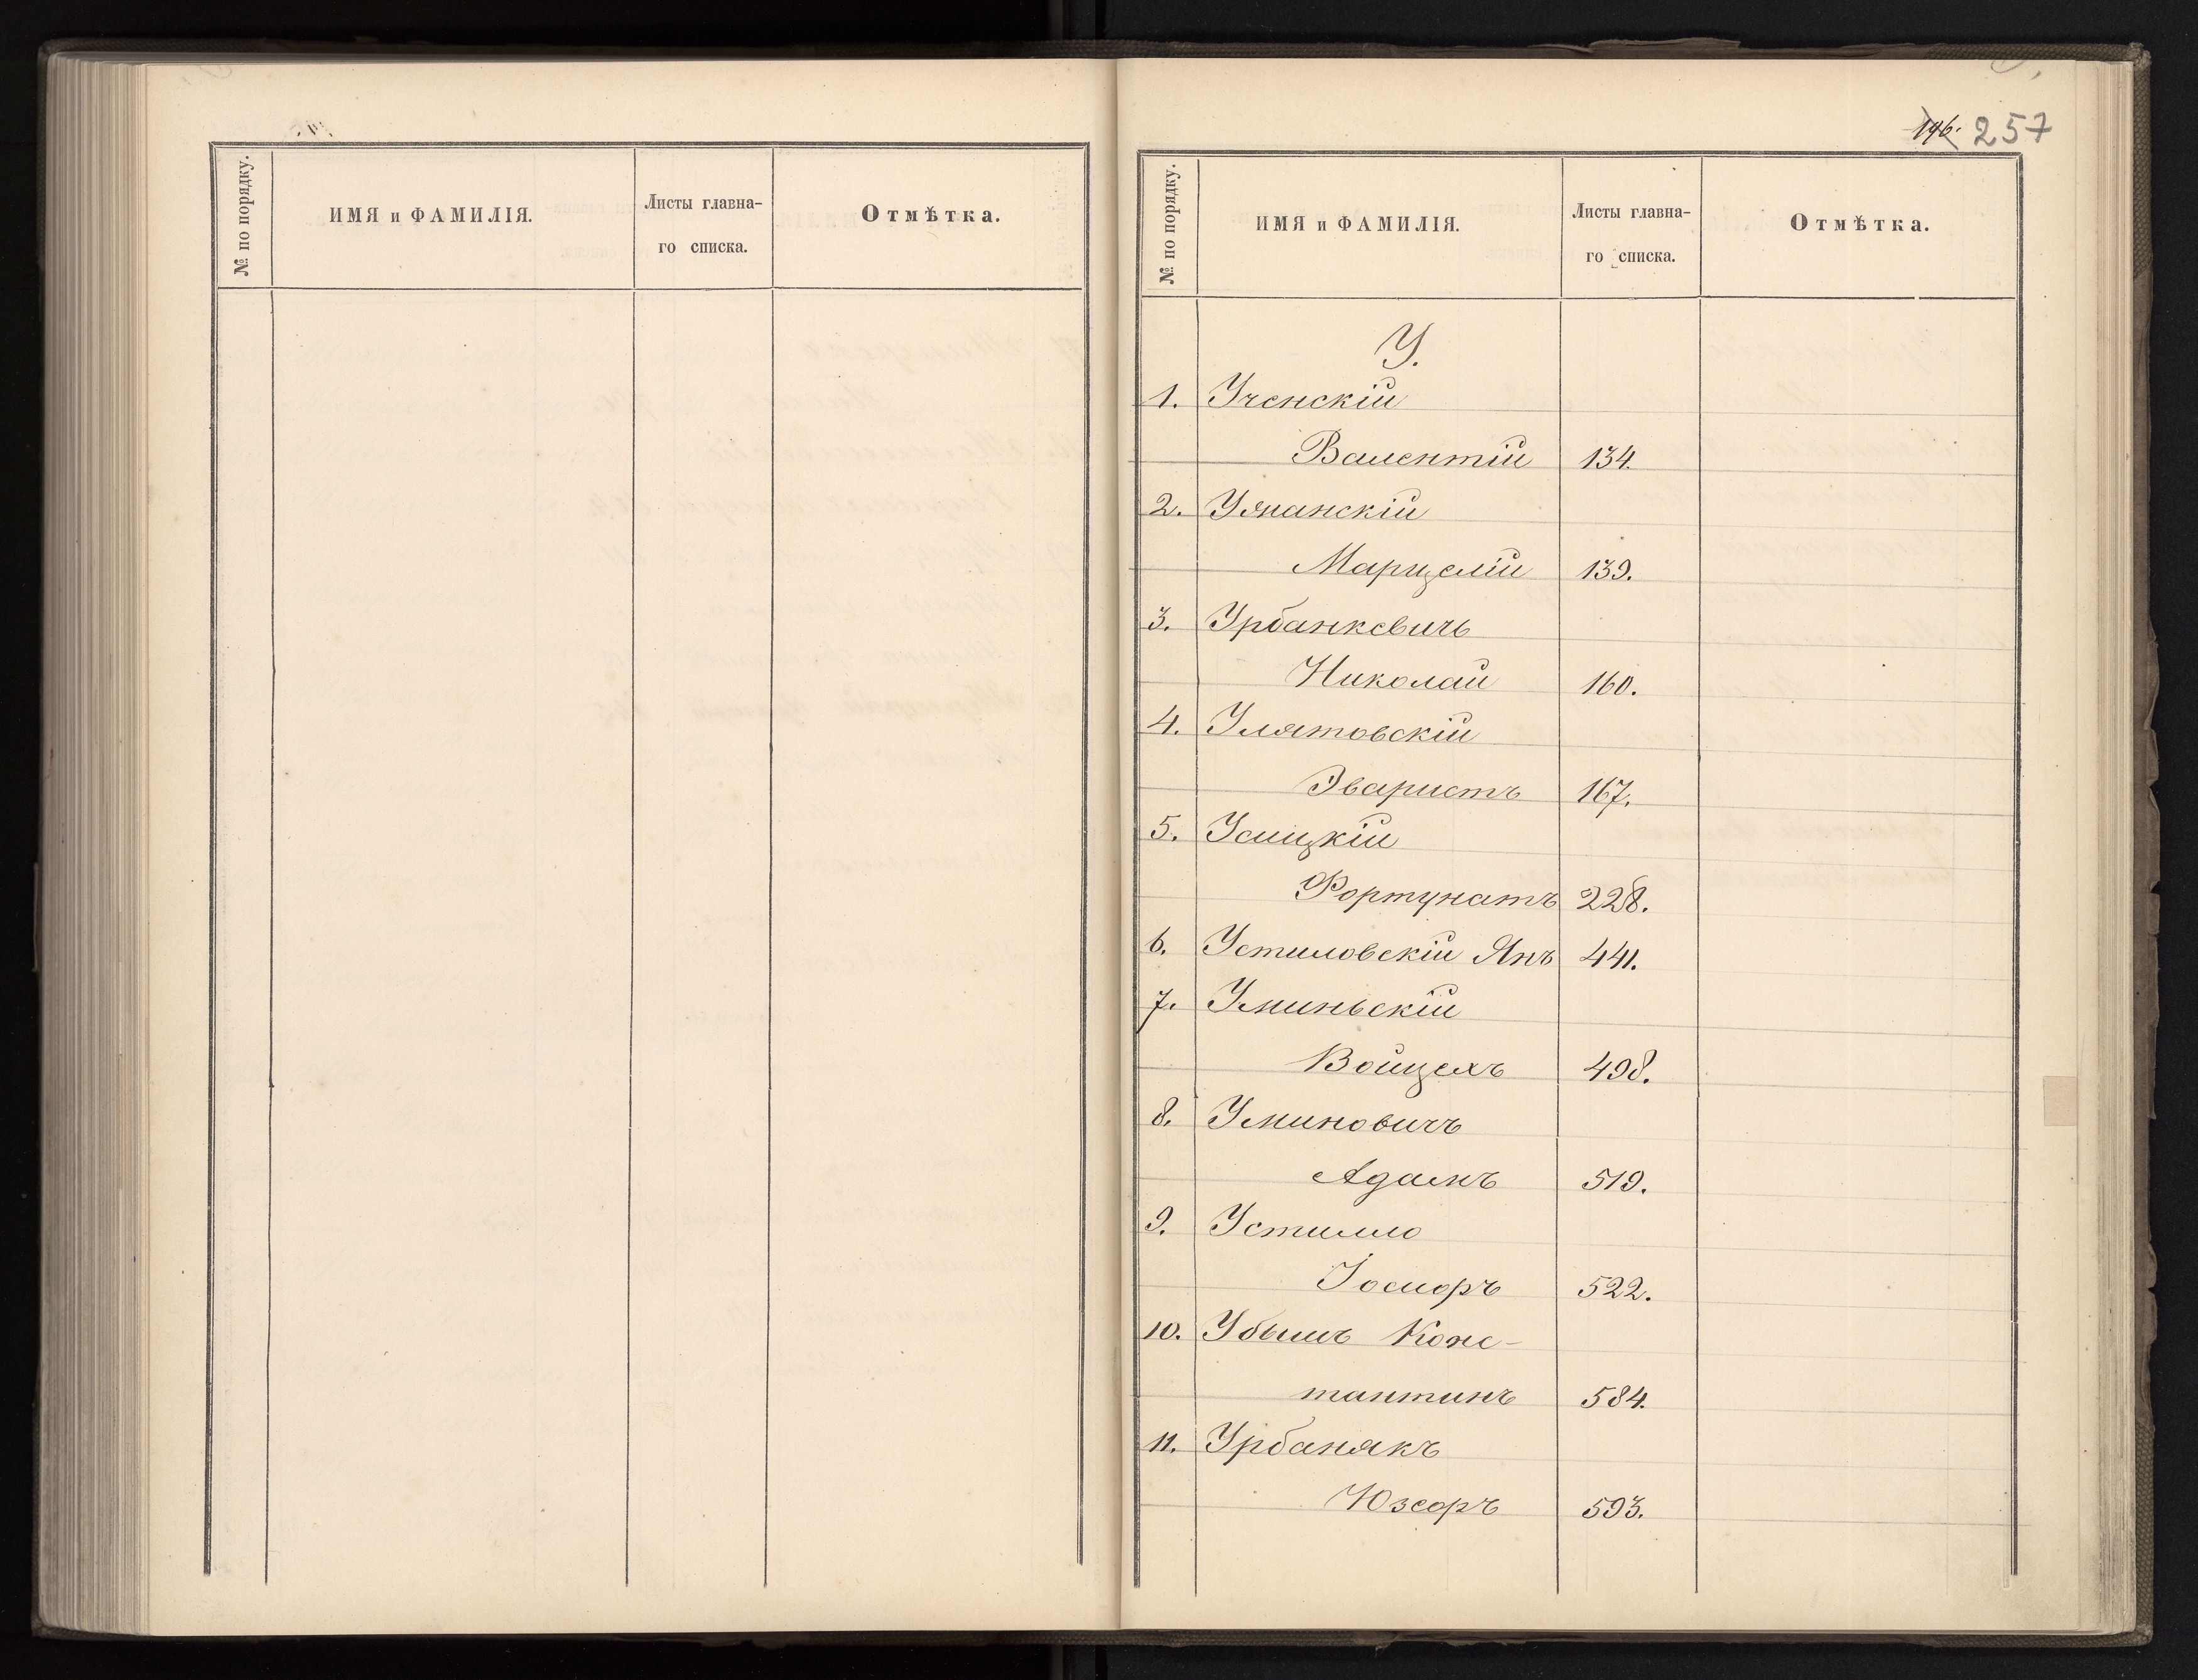 № по порядку.
ИМЯ и ФАМИЛІЯ.
Листы главна-
го списка.
Отмѣтка.
146. 257
№ по порядку.
ИМЯ и ФАМИЛІЯ.
Листы главна-
го списка.
Отмѣтка.
У.
1.Ученскій
Валентій 134.
2. Уманскій
Марцелій 139.
3. Урбанкевичь
Николай 160.
4. Улятовскій
Эваристъ 167.
5. Усицкій
Фортунатъ 228.
6. Устиловскій Янъ 441.
7. Уминьскій
Войцехъ 498.
8. Уминовичъ
Адамъ 519.
9. Устилло
Іосифъ 522.
10. Убышъ Конс-
тантинъ 584.
11. Урбанякъ
Юзефъ 593.